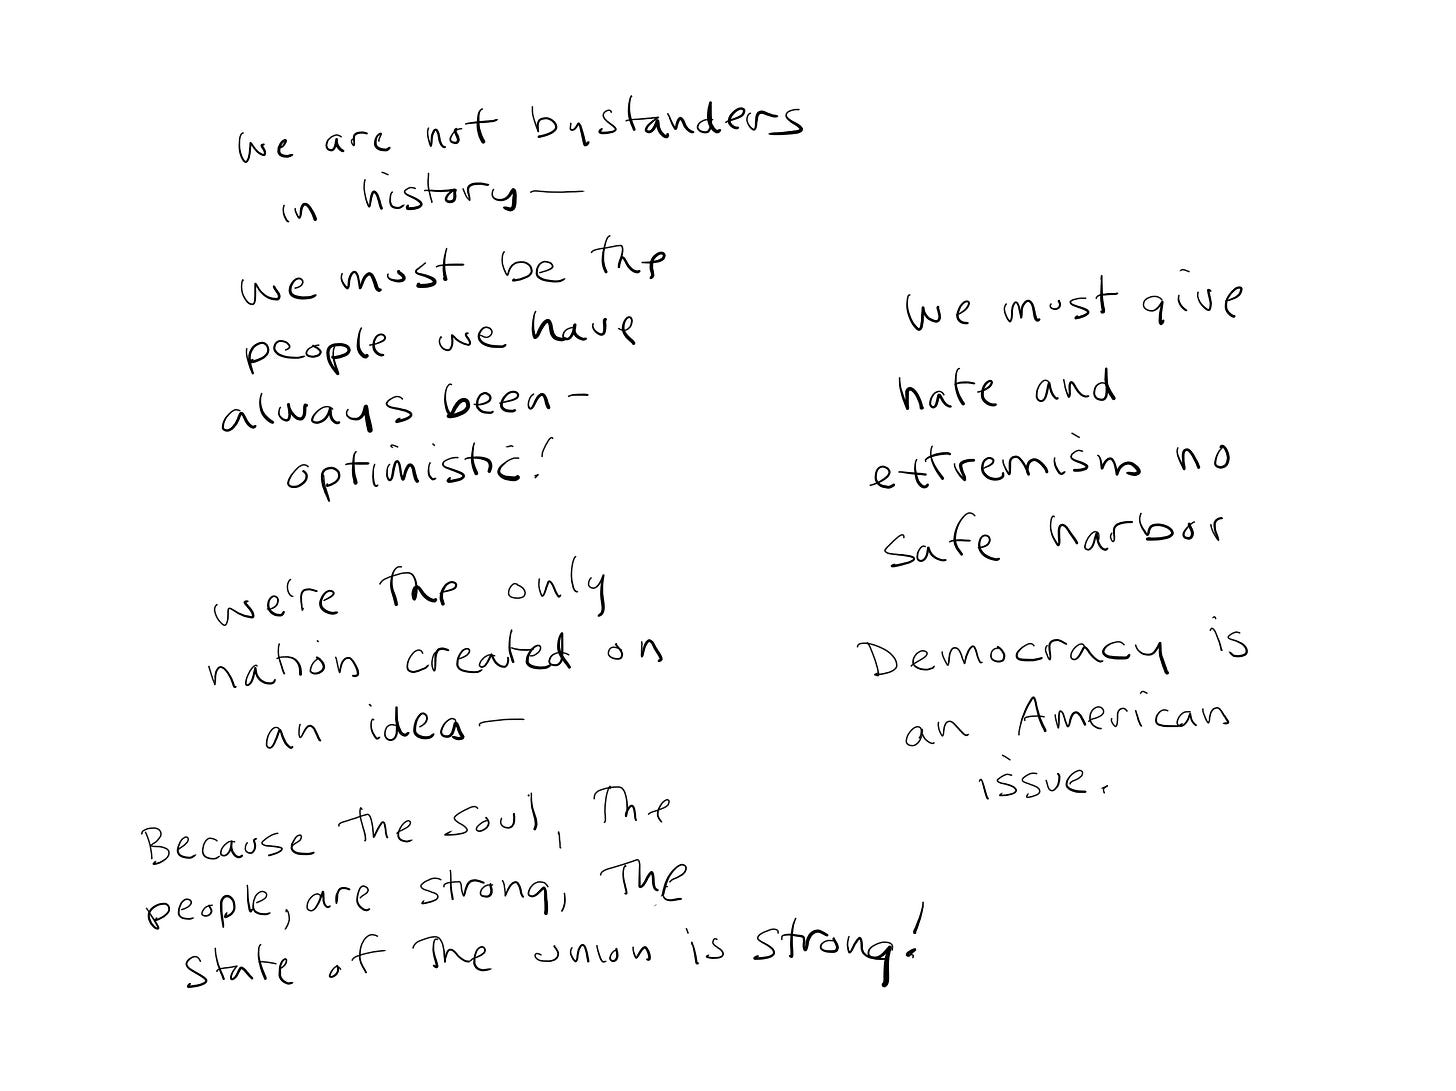 we are not bystanders
in history—
we must be the
people we have
always been–
optimistic!
we're the only
nation created on
an idea—
Because the soul, The
people, are strong, The
state of The union is strong!
we must give
hate and
extremism no
safe harbor
Democracy is
an American
issue.